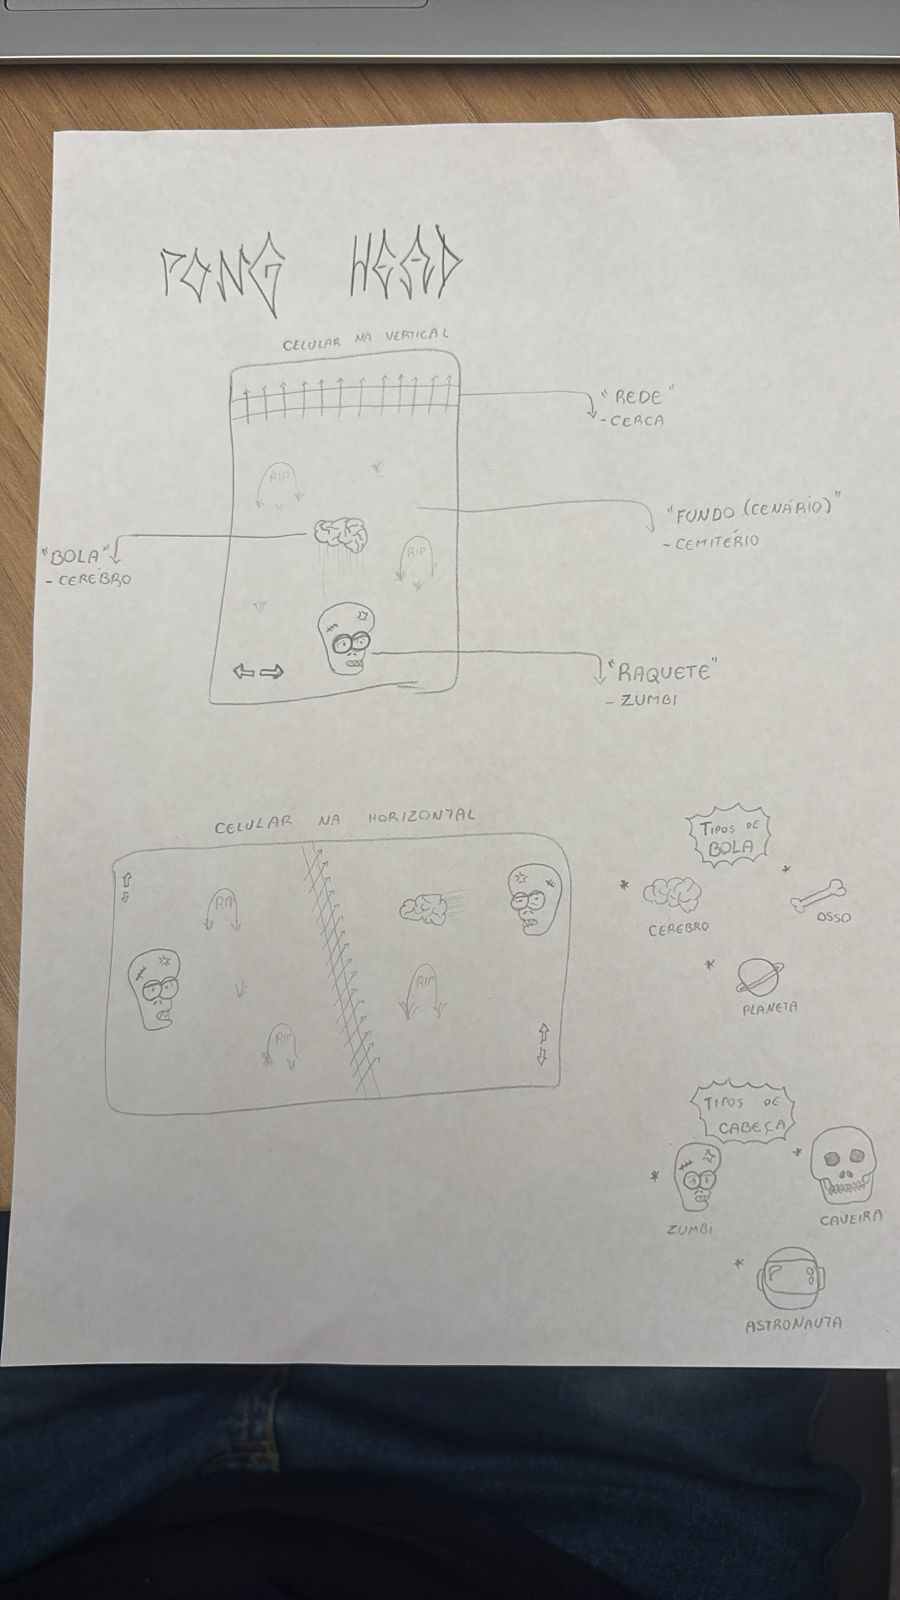 PONG HEAD
CELULAR NA VERTICAL
"REDE"
- CERCA
RIP
"FUNDO (CENÁRIO)"
- CEMITÉRIO
"BOLA"
- CERÉBRO
RIP
"RAQUETE"
- ZUMBI
CELULAR NA HORIZONTAL
TIPOS DE
BOLA
RIP
CÉREBRO
OSSO
RIP
PLANETA
RIP
TIPOS DE
CABEÇA
ZUMBI
CAVEIRA
ASTRONAUTA